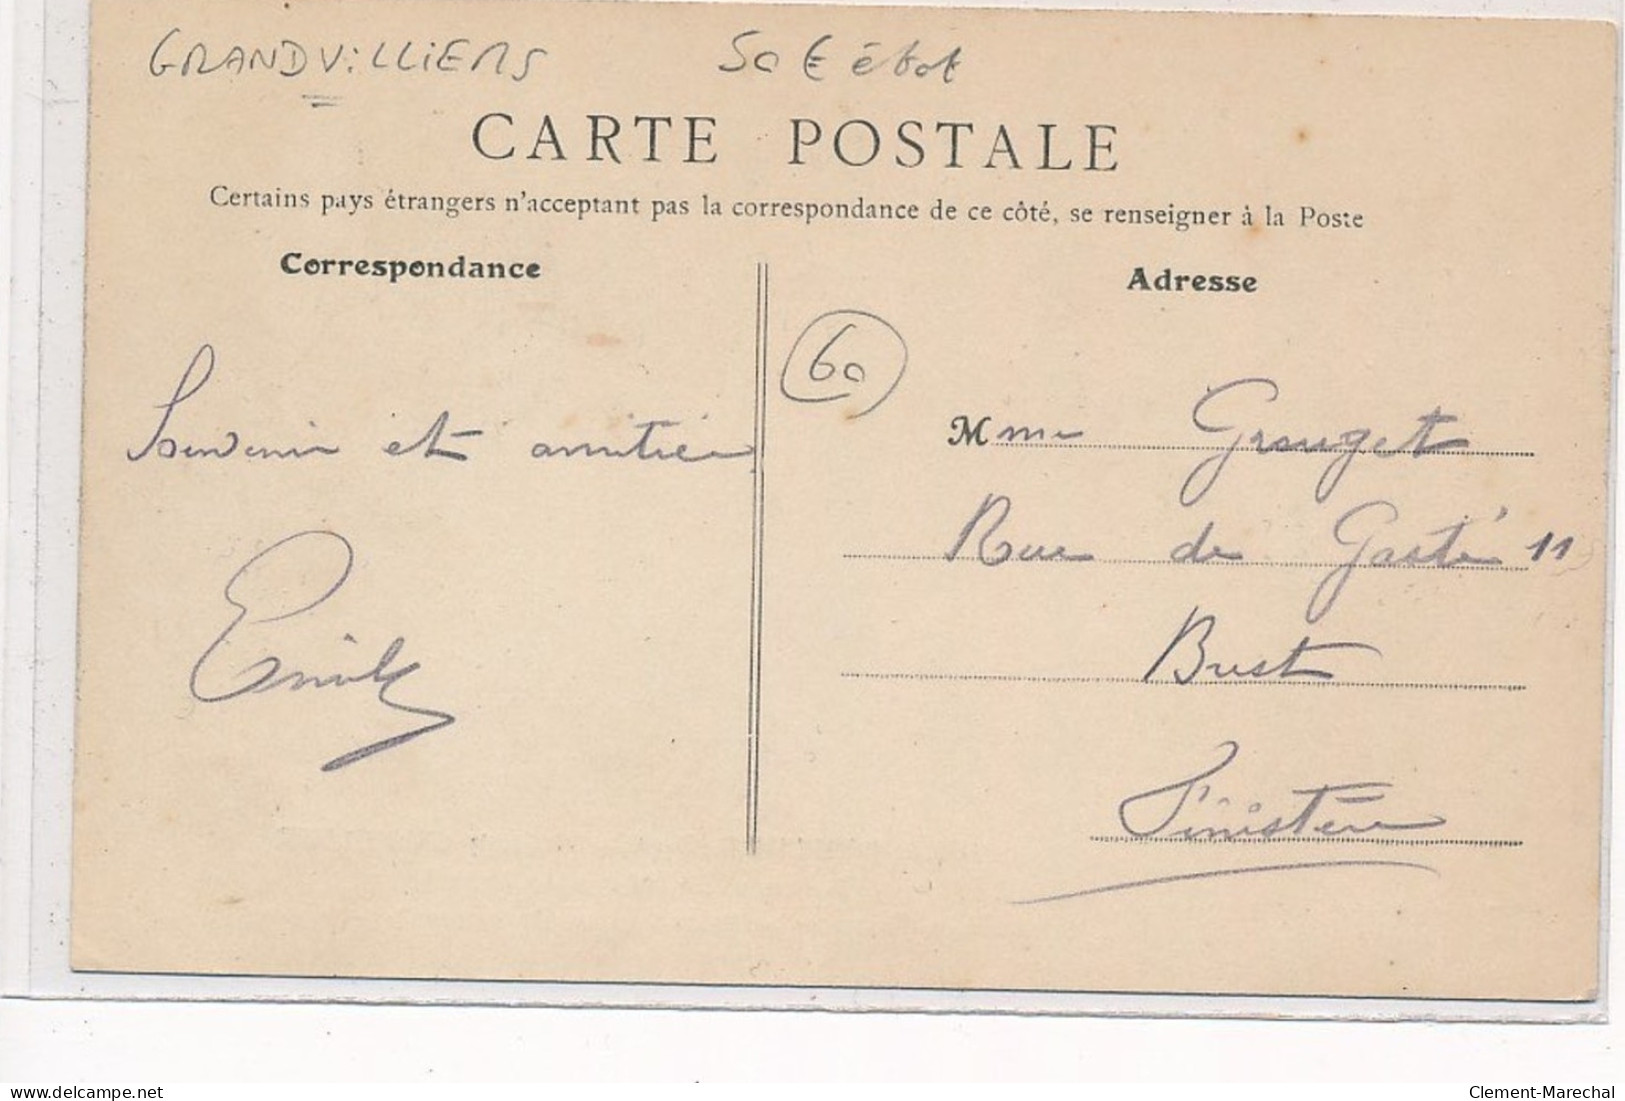 GRANDViLLiERS 50 € état
CARTE POSTALE
Certains pays étrangers n'acceptant pas la correspondance de ce côté, se renseigner à la Poste
Correspondance
Adresse
60
Souvenir et amitié
Mme Grouget
Rue de Gasté 11
Brest
Finistère
delcampe.net
Clement-Marechal